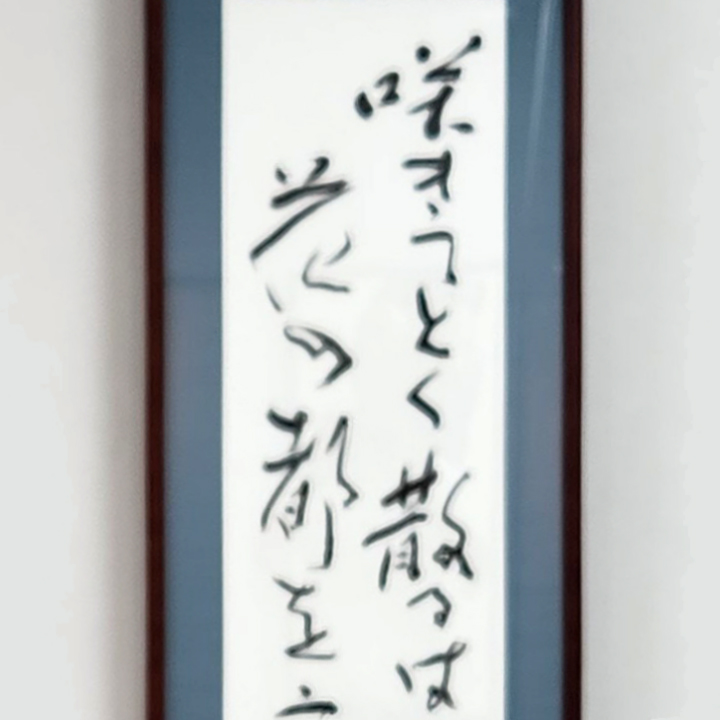 咲きてとく散るは
花の都を